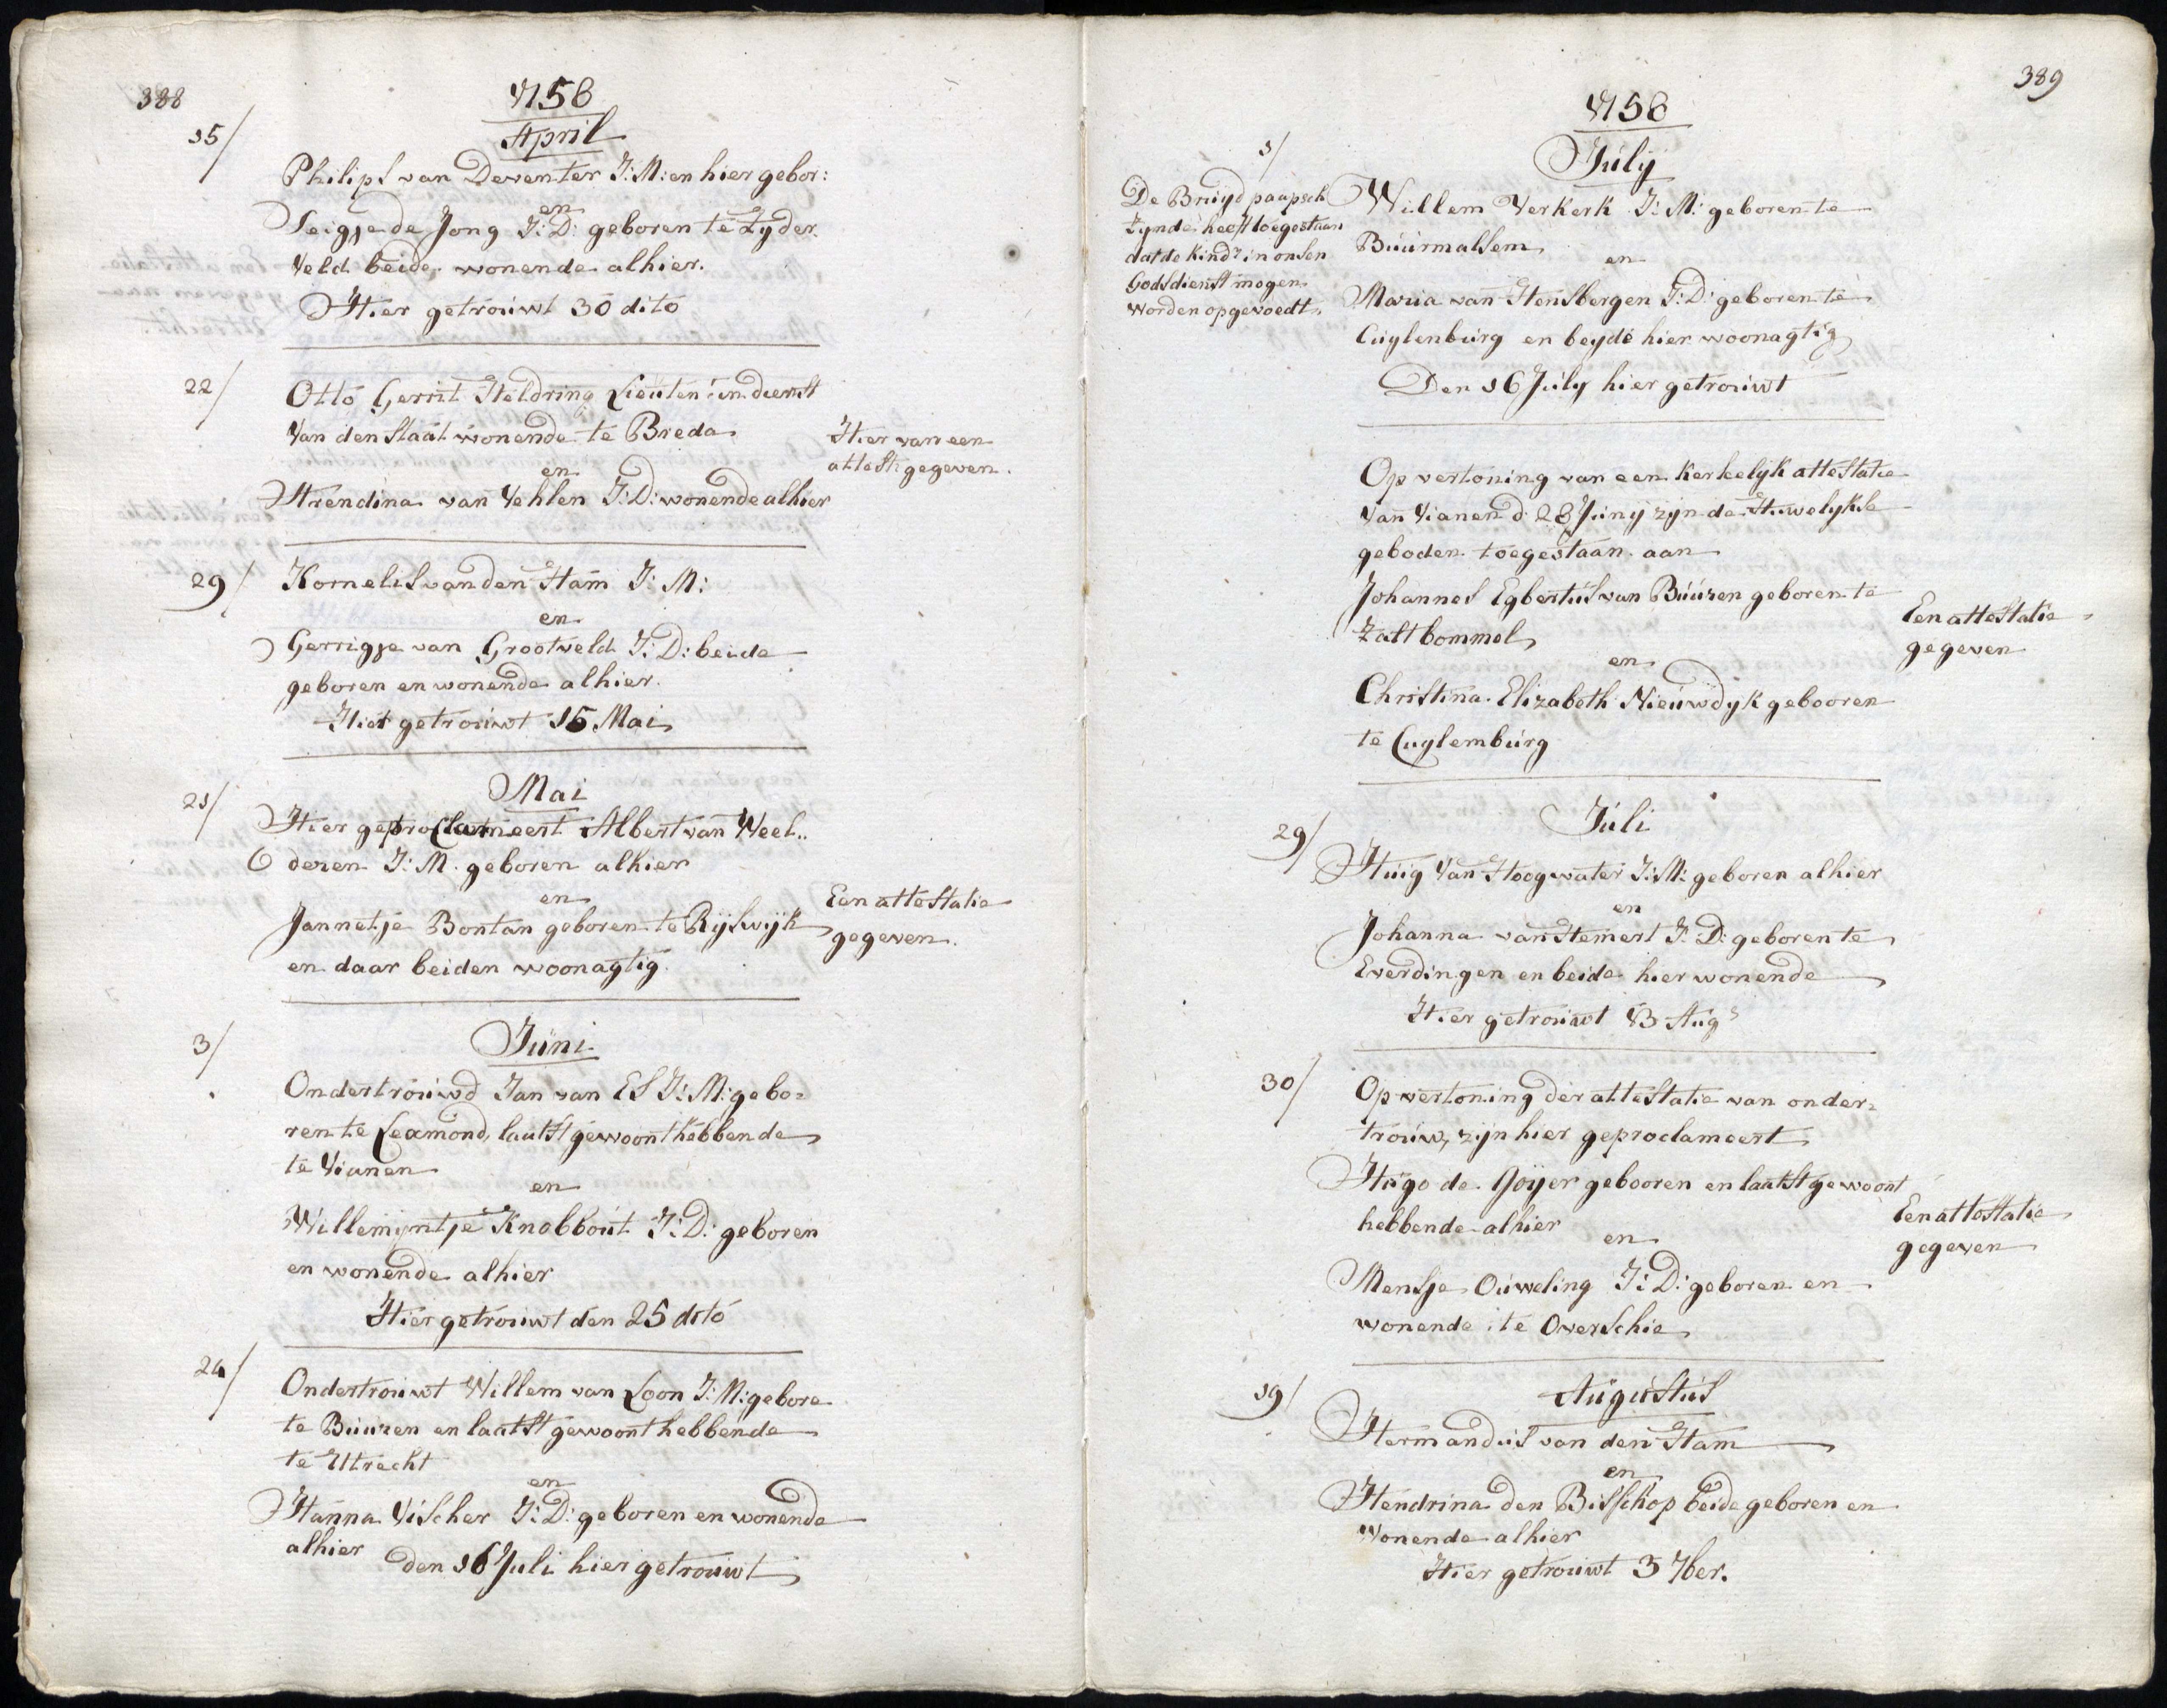 388
1758
April
15/
Philips van Deventer J: M: en hier gebor:
en
Teigje de Jong J: D: geboren te Zyder
Veld beide wonende alhier.
Hier getrouwt 30 dito
22/
Otto Gerrit Heldring Lieuten: in dienst
Van den Staat wonende te Breda
en
Hendina van Vehlen J: D: wonende alhier
Hier van een
attest: gegeven.
29/
Kornelis van den Ham J: M:
en
Gerrigje van Grootveld J: D: beide
geboren en wonende alhier.
Hier getrouwt 15 Mai
Mai
21/
Hier geproclameert Albert van Weel..
deren J: M. geboren alhier
en
Jannetje Bontan geboren te Rijswijk
en daar beiden woonagtig
Een attestatie
gegeven.
Juni
3/
Ondertrouwd Jan van Es J: M: gebo=
ren te Lexmond, laatst gewoont hebbende
te Vianen
en
Willemijntje Knobbout J: D: geboren
en wonende alhier
Hier getrouwt den 25 dito
24/
Ondertrouwt Willem van Loon J: M: gebore
te Buuren en laatst gewoont hebbende
te Utrecht
en
Hanna Vischer J: D: geboren en wonende
alhier
den 16 Juli hier getrouwt
389
1758
July
1/
De Bruyd paapsch
Zynde heeft toegestaan
dat de Kindr in onsen
Godsdienst mogen
worden opgevoedt
Willem Verkerk J: M: geboren te
Buurmalsem
en
Maria van Hensbergen J: D: geboren te
Cuylenburg en beyde hier woonagtig
Den 16 July hier getrouwt
Op vertoning van een Kerkelijk attestatie
Van Vianen d: 28 Junij zijn de Huwelykse
geboden toegestaan aan
Johannes Egbertus van Buuren geboren te
Zaltbommel
en
Christina Elizabeth Nieuwdyk gebooren
te Cuylemburg
Een attestatie
gegeven
Juli
29/
Huig Van Hoogwater J: M: geboren alhier
en
Johanna van Hemert J: D: geboren te
Everdingen en beide hier wonende
Hier getrouwt 13 Aug:
30/
Op vertoning der attestatie van onder=
trouw, zijn hier geproclameert
Hugo de Goijer gebooren en laatst gewoont
hebbende alhier
en
Mensje Ouweling J: D: geboren en
wonende te Overschie
Een attestatie
gegeven
Augustus
19/
Hermandus van den Ham
en
Hendrina den Bisschop beide geboren en
Wonende alhier
Hier getrouwt 3 7ber.